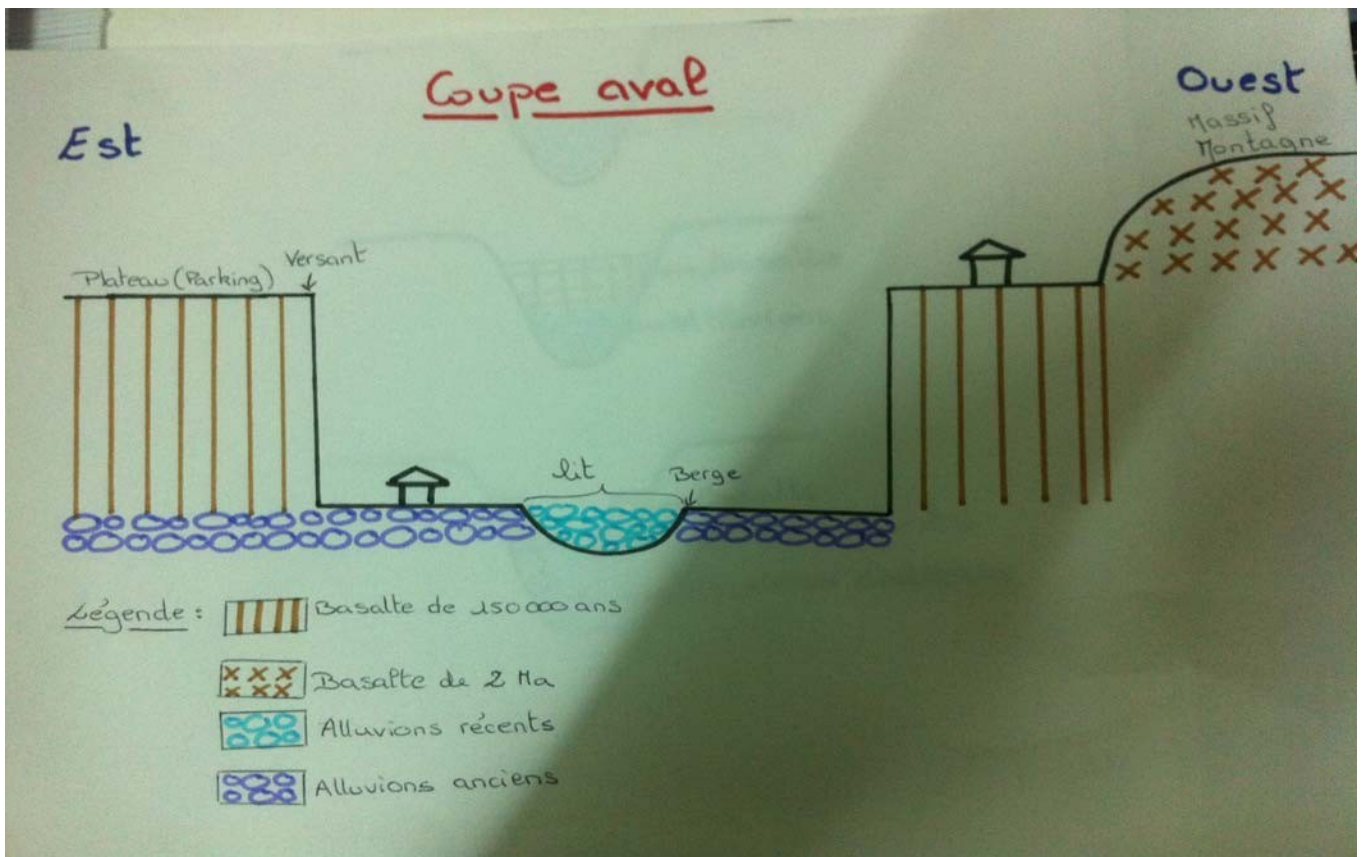 Coupe aval
Est
Ouest
Massif
Montagne
Plateau (Parking)
Versant
lit
Berge
Légende :
Basalte de 150 000 ans
Basalte de 2 Ma
Alluvions récents
Alluvions anciens